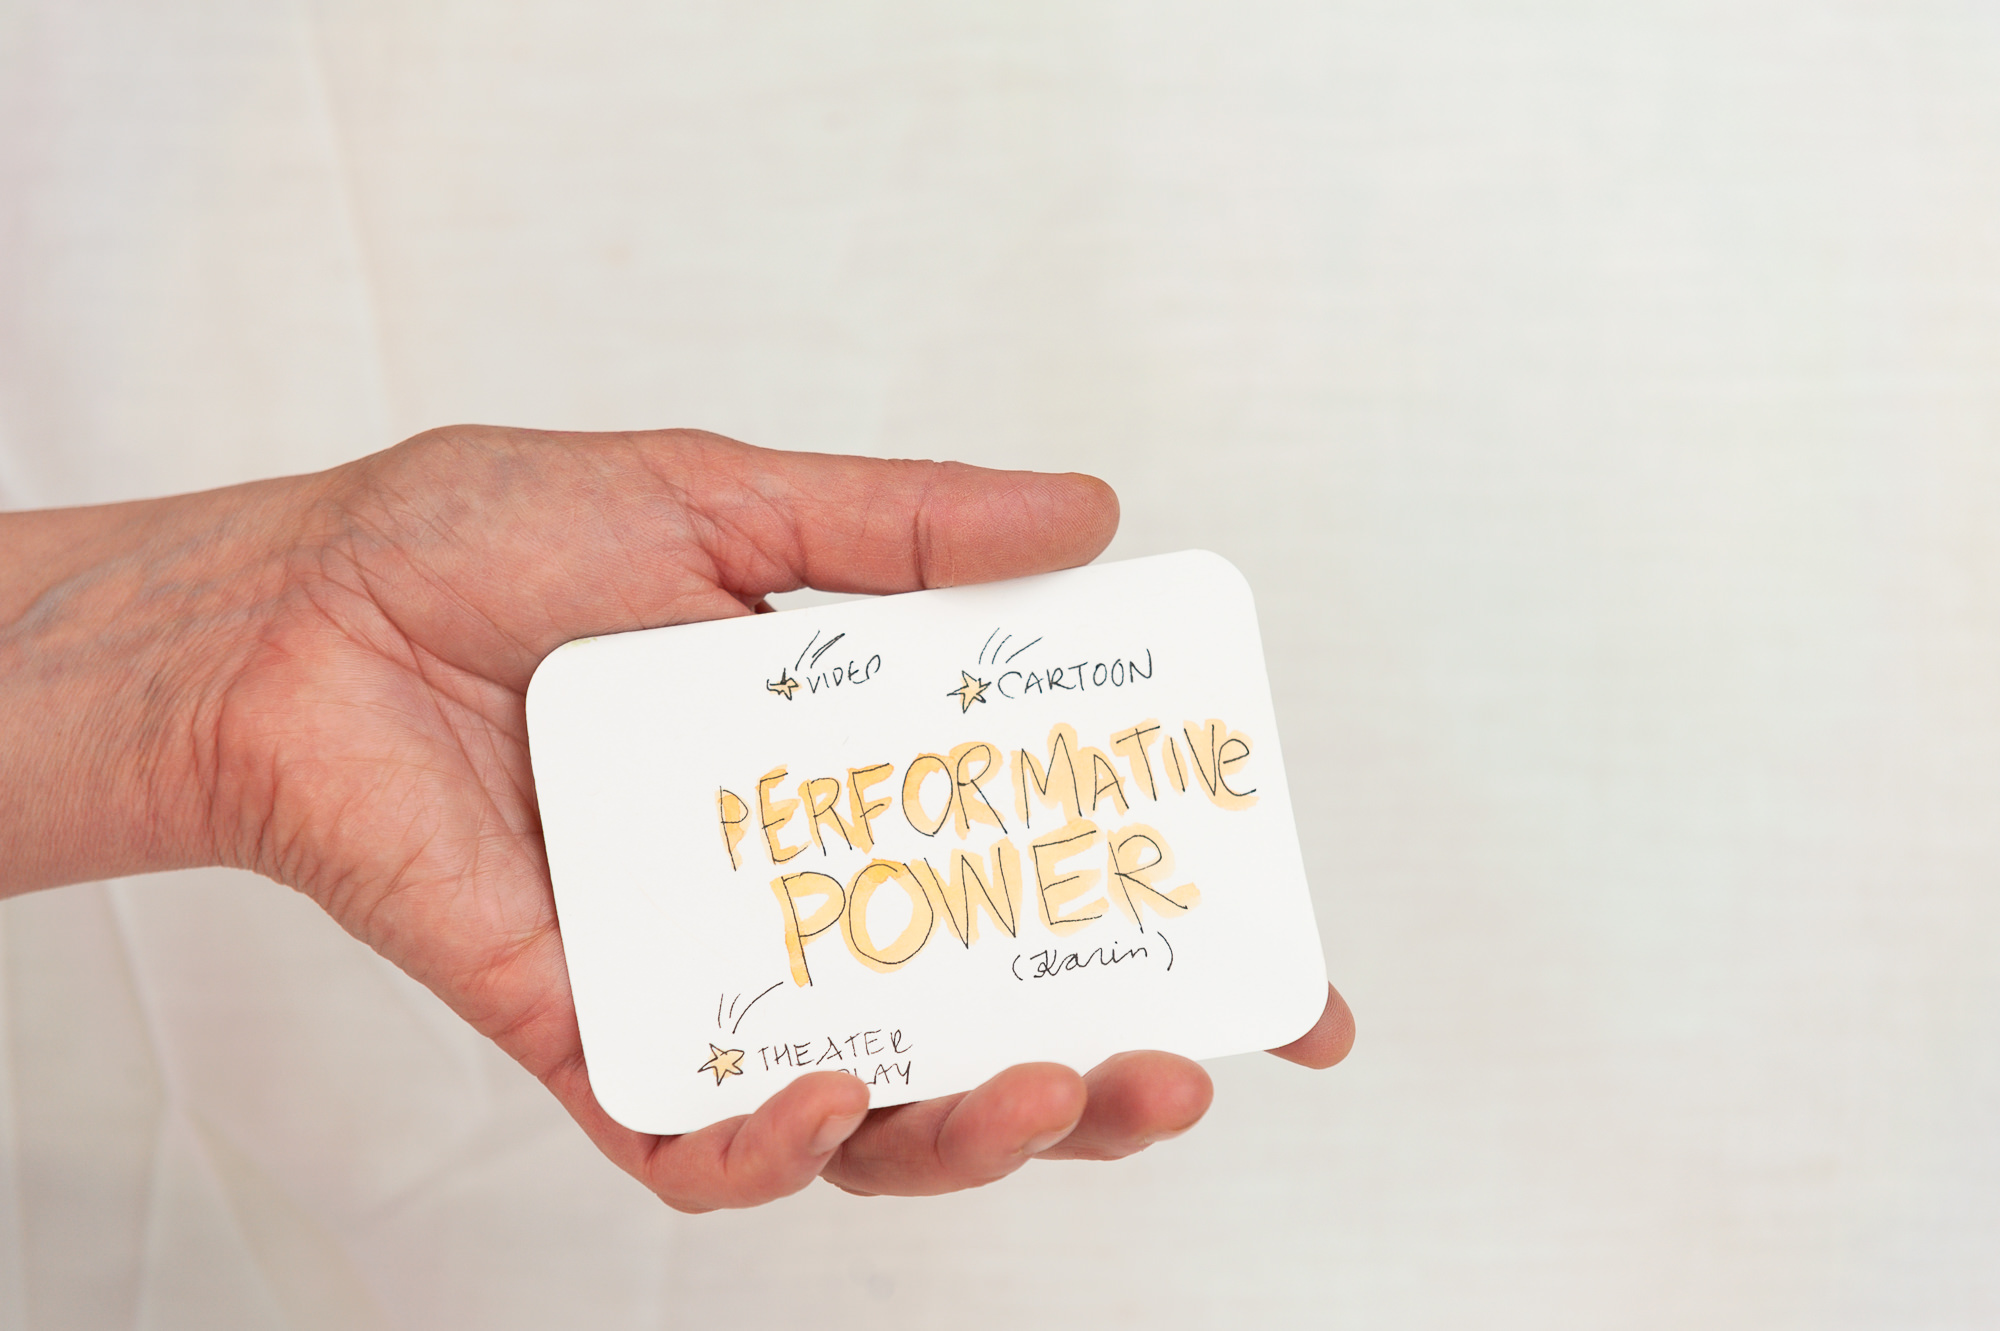 VIDEO
CARTOON
PERFORMATIVe
POWER
(Karin)
THEATER
PLAY